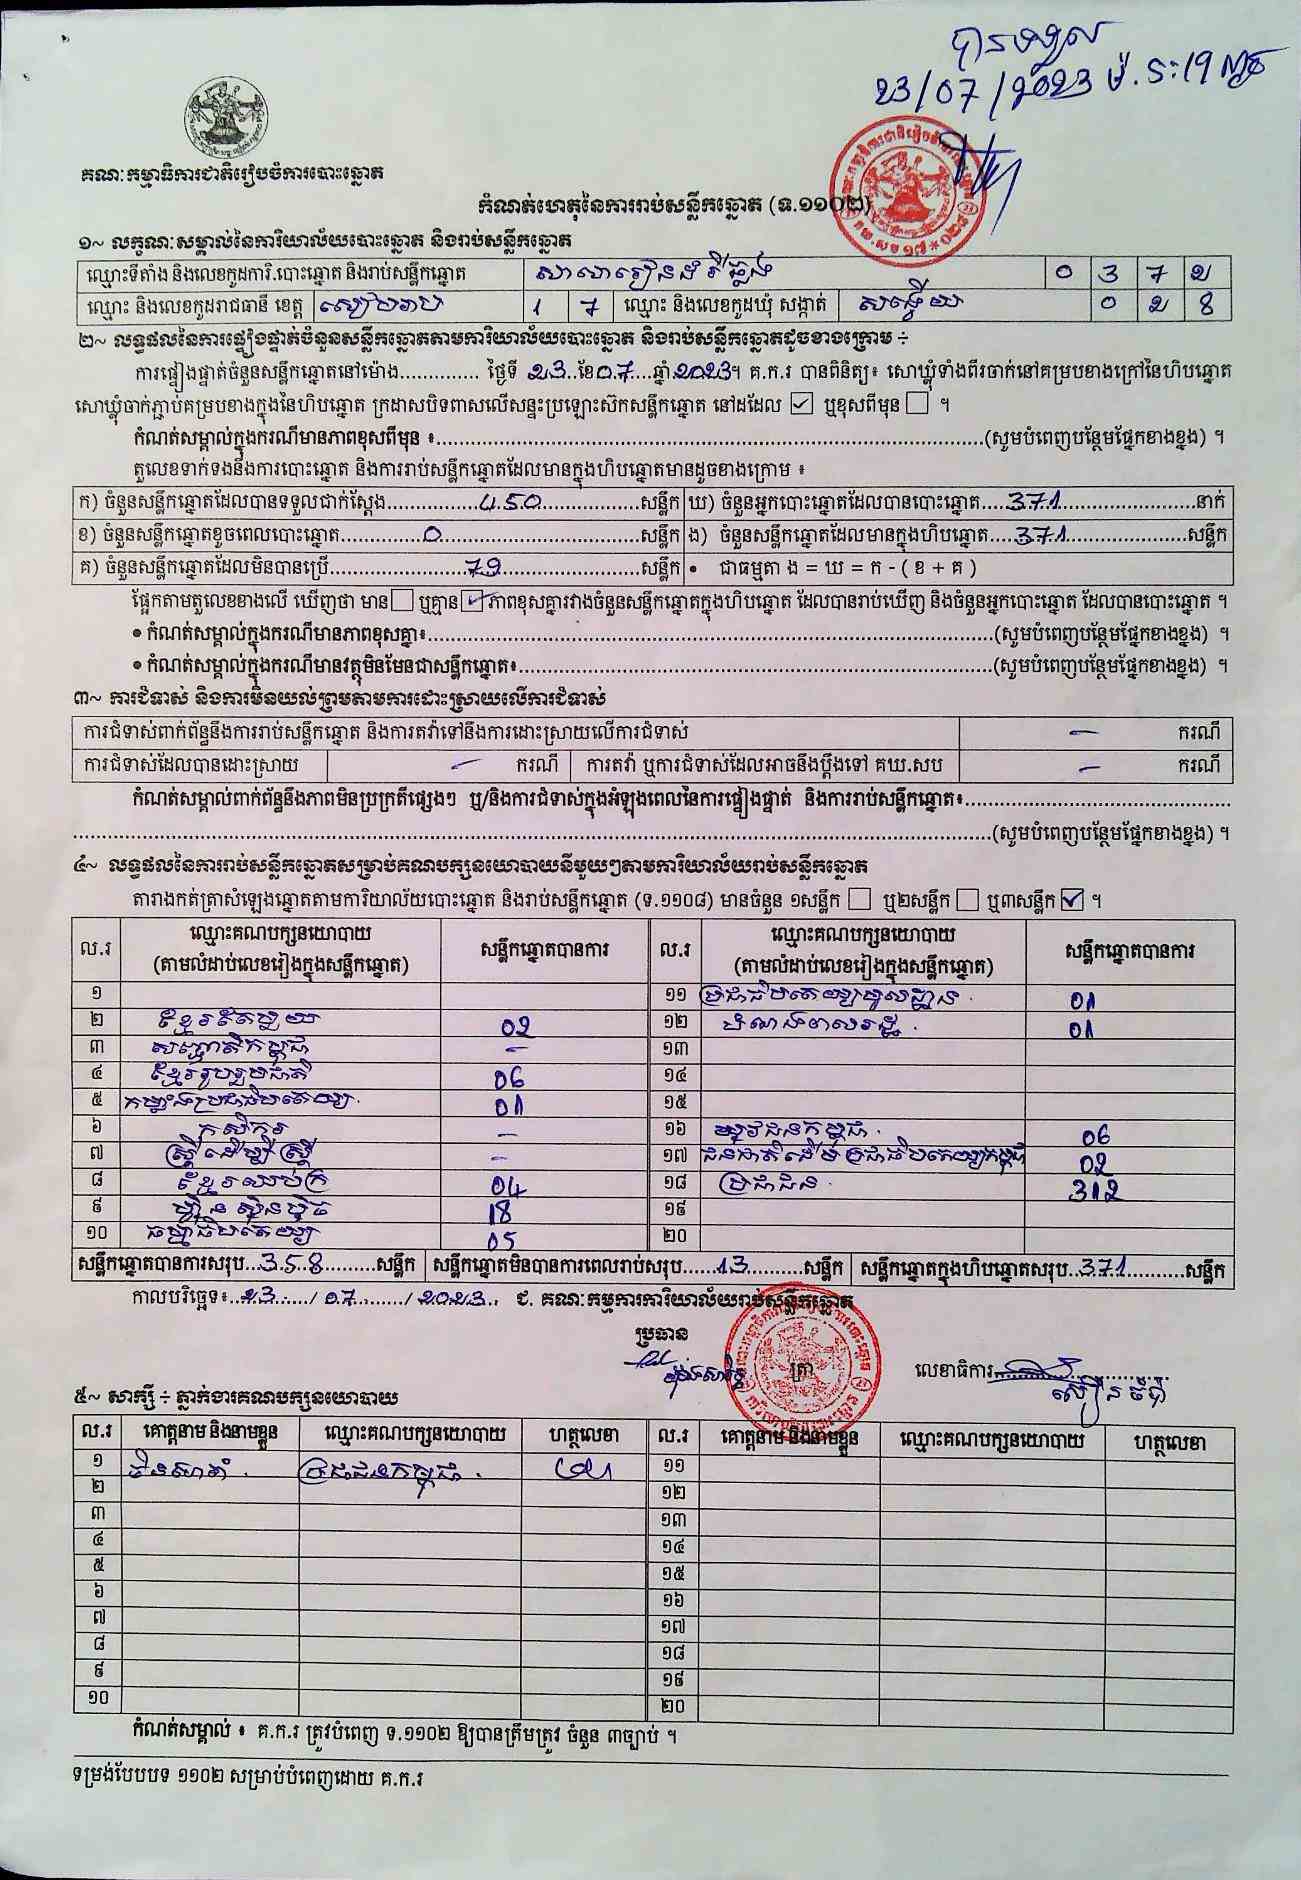 បានទទួល
23/07/2023 ម៉.
គណៈកម្មាធិការជាតិរៀបចំការបោះឆ្នោត
កំណត់ហេតុនៃការរាប់សន្លឹកឆ្នោត (ទ.១១០២)
១~ លក្ខណៈសម្គាល់នៃការិយាល័យបោះឆ្នោត និងរាប់សន្លឹកឆ្នោត
ឈ្មោះទីតាំង និងលេខកូដការិ.បោះឆ្នោត និងរាប់សន្លឹកឆ្នោត សាលារៀនដំរីឆ្លង 0 3 7 2
ឈ្មោះ និងលេខកូដរាជធានី ខេត្ត សៀមរាប 1 7 ឈ្មោះ និងលេខកូដឃុំ សង្កាត់ សង្វើយ 0 2 8
២~ លទ្ធផលនៃការផ្ទៀងផ្ទាត់ចំនួនសន្លឹកឆ្នោតតាមការិយាល័យបោះឆ្នោត និងរាប់សន្លឹកឆ្នោតដូចខាងក្រោម ÷
ការផ្ទៀងផ្ទាត់ចំនួនសន្លឹកឆ្នោតនៅម៉ោង.............. ថ្ងៃទី 23..ខែ0.7....ឆ្នាំ2023។ គ.ក.រ បានពិនិត្យ៖ សោឃ្លុំទាំងពីរចាក់នៅគម្របខាងក្រៅនៃហិបឆ្នោត
សោឃ្លុំចាក់ភ្ជាប់គម្របខាងក្នុងនៃហិបឆ្នោត ក្រដាសបិទពាសលើសន្ទះប្រឡោះស៊កសន្លឹកឆ្នោត នៅដដែល ☑ ឬខុសពីមុន ☐ ។
កំណត់សម្គាល់ក្នុងករណីមានភាពខុសពីមុន ៖..........(សូមបំពេញបន្ថែមផ្នែកខាងខ្នង) ។
តួលេខទាក់ទងនឹងការបោះឆ្នោត និងការរាប់សន្លឹកឆ្នោតដែលមានក្នុងហិបឆ្នោតមានដូចខាងក្រោម ៖
ក) ចំនួនសន្លឹកឆ្នោតដែលបានទទួលជាក់ស្តែង..........450..........សន្លឹក ឃ) ចំនួនអ្នកបោះឆ្នោតដែលបានបោះឆ្នោត.....371..........នាក់
ខ) ចំនួនសន្លឹកឆ្នោតខូចពេលបោះឆ្នោត..........0..........សន្លឹក ង) ចំនួនសន្លឹកឆ្នោតដែលមានក្នុងហិបឆ្នោត....371..........សន្លឹក
គ) ចំនួនសន្លឹកឆ្នោតដែលមិនបានប្រើ..........79..........សន្លឹក • ជាធម្មតា ង = ឃ = ក - ( ខ + គ )
ផ្អែកតាមតួលេខខាងលើ ឃើញថា មាន ☐ ឬគ្មាន ☑ ភាពខុសគ្នារវាងចំនួនសន្លឹកឆ្នោតក្នុងហិបឆ្នោត ដែលបានរាប់ឃើញ និងចំនួនអ្នកបោះឆ្នោត ដែលបានបោះឆ្នោត ។
• កំណត់សម្គាល់ក្នុងករណីមានភាពខុសគ្នា៖..........(សូមបំពេញបន្ថែមផ្នែកខាងខ្នង) ។
• កំណត់សម្គាល់ក្នុងករណីមានវត្ថុមិនមែនជាសន្លឹកឆ្នោត៖..........(សូមបំពេញបន្ថែមផ្នែកខាងខ្នង) ។
៣~ ការជំទាស់ និងការមិនយល់ព្រមតាមការដោះស្រាយលើការជំទាស់
ការជំទាស់ពាក់ព័ន្ធនឹងការរាប់សន្លឹកឆ្នោត និងការតវ៉ាទៅនឹងការដោះស្រាយលើការជំទាស់ – ករណី
ការជំទាស់ដែលបានដោះស្រាយ – ករណី ការតវ៉ា ឬការជំទាស់ដែលអាចនឹងប្តឹងទៅ គឃ.សប – ករណី
កំណត់សម្គាល់ពាក់ព័ន្ធនឹងភាពមិនប្រក្រតីផ្សេងៗ ឬ/និងការជំទាស់ក្នុងអំឡុងពេលនៃការផ្ទៀងផ្ទាត់ និងការរាប់សន្លឹកឆ្នោត៖..........
..........(សូមបំពេញបន្ថែមផ្នែកខាងខ្នង) ។
៤~ លទ្ធផលនៃការរាប់សន្លឹកឆ្នោតសម្រាប់គណបក្សនយោបាយនីមួយៗតាមការិយាល័យរាប់សន្លឹកឆ្នោត
តារាងកត់ត្រាសំឡេងឆ្នោតតាមការិយាល័យបោះឆ្នោត និងរាប់សន្លឹកឆ្នោត (ទ.១១០៨) មានចំនួន ១សន្លឹក ☐ ឬ២សន្លឹក ☐ ឬ៣សន្លឹក ☑ ។
ល.រ ឈ្មោះគណបក្សនយោបាយ (តាមលំដាប់លេខរៀងក្នុងសន្លឹកឆ្នោត) សន្លឹកឆ្នោតបានការ ល.រ ឈ្មោះគណបក្សនយោបាយ (តាមលំដាប់លេខរៀងក្នុងសន្លឹកឆ្នោត) សន្លឹកឆ្នោតបានការ
១ ១១ ប្រជាធិបតេយ្យមូលដ្ឋាន. 01
២ ខ្មែរតែមួយ 02 ១២ បំណងពលរដ្ឋ. 01
៣ សញ្ជាតិកម្ពុជា – ១៣
៤ ខ្មែររួបរួមជាតិ 06 ១៤
៥ កម្លាំងប្រជាធិបតេយ្យ. 01 ១៥
៦ កសិករ – ១៦ យុវជនកម្ពុជា. 06
៧ ស្រ្តីដើម្បីស្រ្តី – ១៧ ជនជាតិដើមប្រជាធិបតេយ្យកម្ពុជា 02
៨ ខ្មែរឈប់ក្រ 04 ១៨ ប្រជាជន. 312
៩ ហ្វ៊ុនស៊ិនប៉ិច 18 ១៩
១០ ធម្មាធិបតេយ្យ 05 ២០
សន្លឹកឆ្នោតបានការសរុប..358......សន្លឹក សន្លឹកឆ្នោតមិនបានការពេលរាប់សរុប......13..........សន្លឹក សន្លឹកឆ្នោតក្នុងហិបឆ្នោតសរុប..371..........សន្លឹក
កាលបរិច្ឆេទ៖..23...../ 07......../ 2023.. ជ. គណៈកម្មការការិយាល័យរាប់សន្លឹកឆ្នោត
ប្រធាន
ត្រា
លេខាធិការ
៥~ សាក្សី ÷ ភ្នាក់ងារគណបក្សនយោបាយ
ល.រ គោត្តនាម និងនាមខ្លួន ឈ្មោះគណបក្សនយោបាយ ហត្ថលេខា ល.រ គោត្តនាម និងនាមខ្លួន ឈ្មោះគណបក្សនយោបាយ ហត្ថលេខា
១ ប្រជាជនកម្ពុជា. ១១
២ ១២
៣ ១៣
៤ ១៤
៥ ១៥
៦ ១៦
៧ ១៧
៨ ១៨
៩ ១៩
១០ ២០
កំណត់សម្គាល់ ៖ គ.ក.រ ត្រូវបំពេញ ទ.១១០២ ឱ្យបានត្រឹមត្រូវ ចំនួន ៣ច្បាប់ ។
ទម្រង់បែបបទ ១១០២ សម្រាប់បំពេញដោយ គ.ក.រ